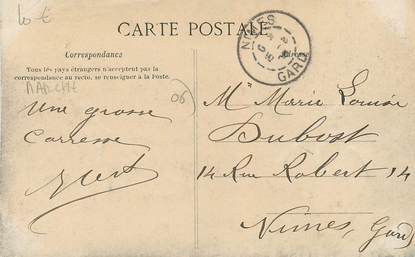 10 €
CARTE POSTALE
Correspondance
Tous les pays étrangers n'acceptent pas la
correspondance au recto, se renseigner à la Poste.
06
Une grosse
Caresse
NIMES
GARD
Mlle Marie Louise
Dubost
14 Rue Robert 14
Nimes, Gard